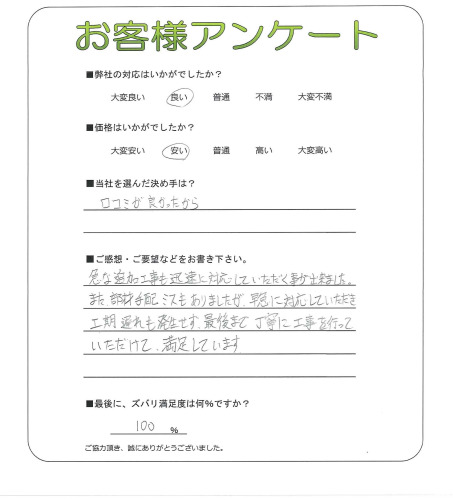 お客様アンケート
■弊社の対応はいかがでしたか？
大変良い 良い 普通 不満 大変不満
■価格はいかがでしたか？
大変安い 安い 普通 高い 大変高い
■当社を選んだ決め手は？
口コミが良かったから
■ご感想・ご要望などをお書き下さい。
急な追加工事も迅速に対応していただく事が出来ました。
また、部材手配ミスもありましたが、早急に対応していただき
工期遅れも発生せず、最後まで丁寧に工事を行って
いただけて、満足しています
■最後に、ズバリ満足度は何%ですか？
100 %
ご協力頂き、誠にありがとうございました。